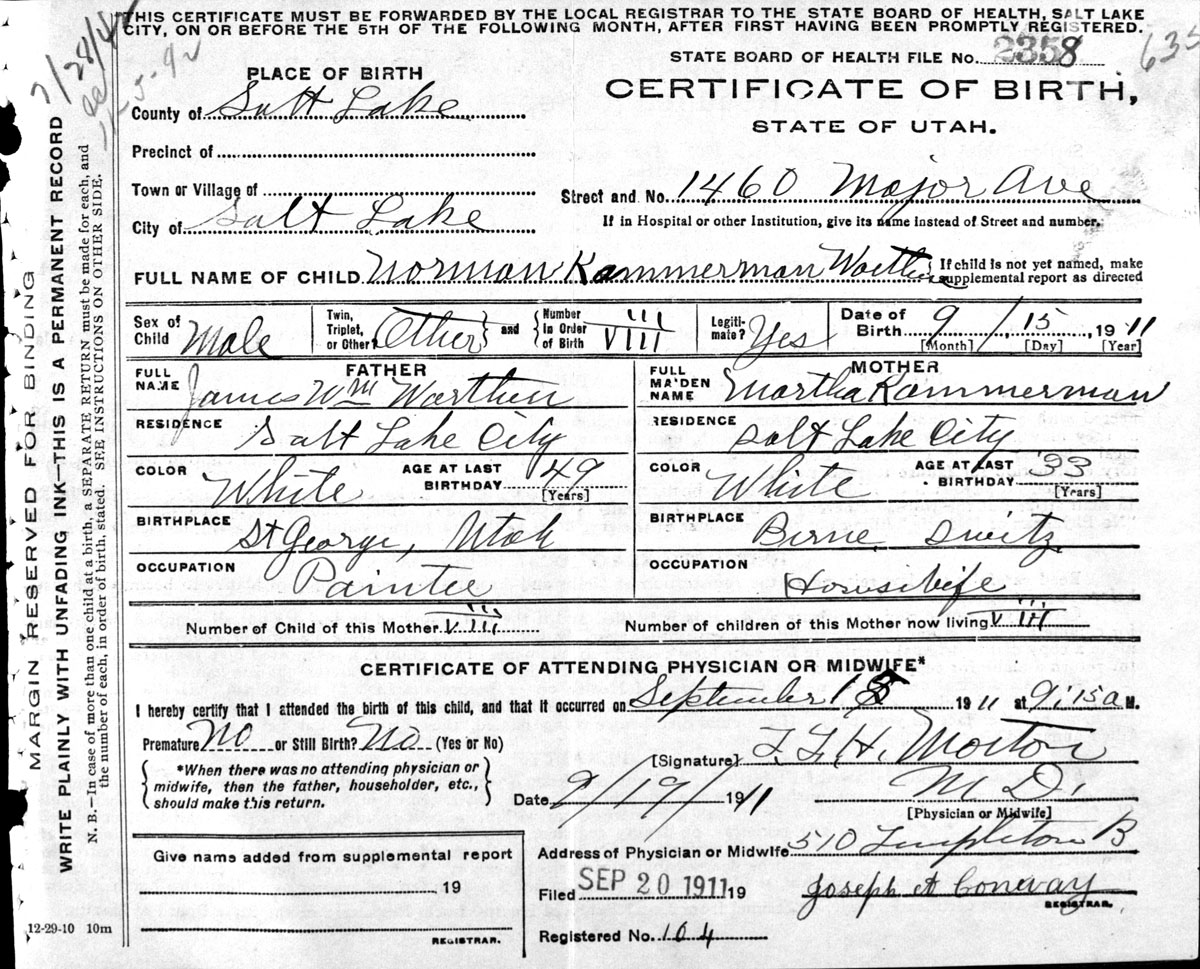 THIS CERTIFICATE MUST BE FORWARDED BY THE LOCAL REGISTRAR TO THE STATE BOARD OF HEALTH, SALT LAKE
CITY, ON OR BEFORE THE 5TH OF THE FOLLOWING MONTH, AFTER FIRST HAVING BEEN PROMPTLY REGISTERED.
STATE BOARD OF HEALTH FILE NO. 2358
635
PLACE OF BIRTH
CERTIFICATE OF BIRTH,
STATE OF UTAH.
County of Salt Lake
Precinct of
Town or Village of
Street and No. 1460 Major Ave
City of Salt Lake
If in Hospital or other Institution, give its name instead of Street and number.
FULL NAME OF CHILD Norman Kammerman Worthen
If child is not yet named, make
supplemental report as directed
Sex of Child Male
Twin, Triplet, or Other Other and Number in Order of Birth VIII
Legitimate? Yes
Date of Birth 9/15, 1911
[Month] [Day] [Year]
FATHER
FULL NAME James Wm Worthen
MOTHER
FULL MAIDEN NAME Martha Kammerman
RESIDENCE Salt Lake City
RESIDENCE Salt Lake City
COLOR White AGE AT LAST BIRTHDAY 49 [Years]
COLOR White AGE AT LAST BIRTHDAY 33 [Years]
BIRTHPLACE St George, Utah
BIRTHPLACE Berne Switz
OCCUPATION Painter
OCCUPATION Housewife
Number of Child of this Mother VIII
Number of children of this Mother now living VIII
CERTIFICATE OF ATTENDING PHYSICIAN OR MIDWIFE*
I hereby certify that I attended the birth of this child, and that it occurred on September 15 1911 at 9:15a M.
Premature No or Still Birth? No (Yes or No)
*When there was no attending physician or
midwife, then the father, householder, etc.,
should make this return.
[Signature] Morton
M D.
[Physician or Midwife]
Date 9/19/1911
Give name added from supplemental report
19
REGISTRAR.
Address of Physician or Midwife 510 Templeton B
Filed SEP 20 1911 19
Joseph A Conway
REGISTRAR.
Registered No. 104
12-29-10 10m
MARGIN RESERVED FOR BINDING
WRITE PLAINLY WITH UNFADING INK—THIS IS A PERMANENT RECORD
N. B.—In case of more than one child at a birth, a SEPARATE RETURN must be made for each, and
the number of each, in order of birth, stated. SEE INSTRUCTIONS ON OTHER SIDE.